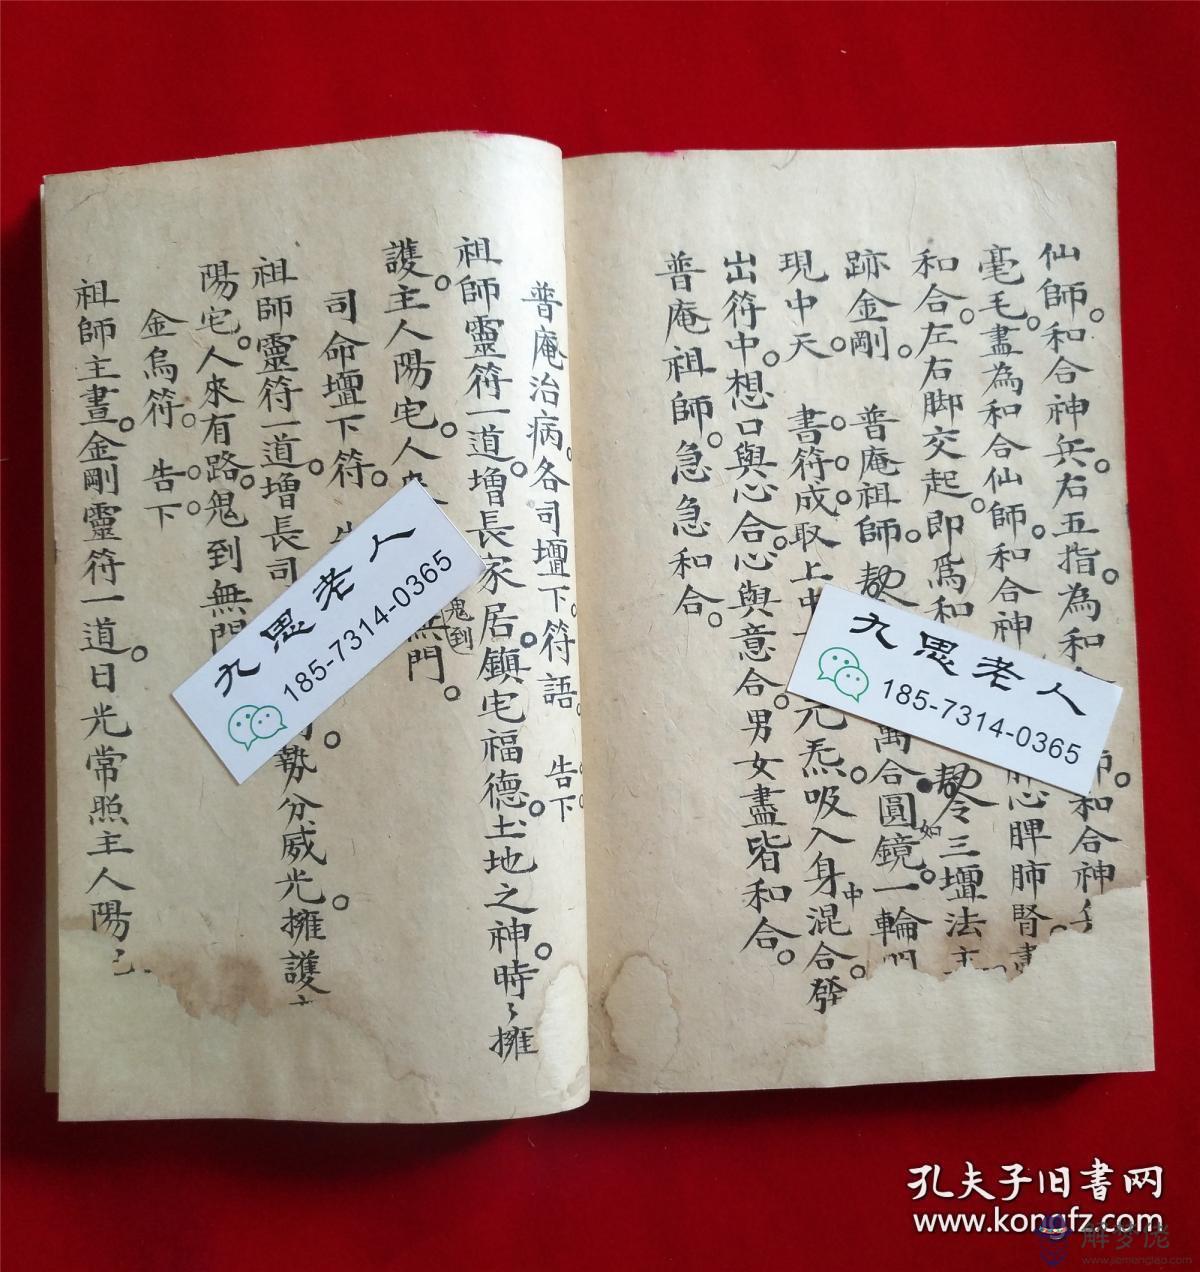 仙師。和合神兵。右五指為和
師。和合神
毫毛。盡為和合仙師。和合神
肝心脾肺腎。
和合。左右脚交起。即爲和
令三壇法主
跡金剛。 普庵祖師。
萬合圓鏡。如一輪
現中天。 書。符。成取上
元炁。吸入身中混合。發
出符中。想口與心合。心與意合。男女盡皆和合。
普庵祖師。急急和合。
普庵治病。各司壇下。符語。 告下。
祖師靈符一道。增長家居。鎮宅福德。土地之神。時々擁
護。主人陽宅。人
鬼到無門。
司命壇下符。
祖師靈符一道。增長司
勢分威光。擁護
陽宅。人來有路。鬼到無門
金烏符。 告下。
祖師主晝。金剛靈符一道。日光常照主人陽
九思老人
185-7314-0365
九思老人
185-7314-0365
孔夫子旧書网
www.kongfz.com
解梦佬
www.jiemenglao.com